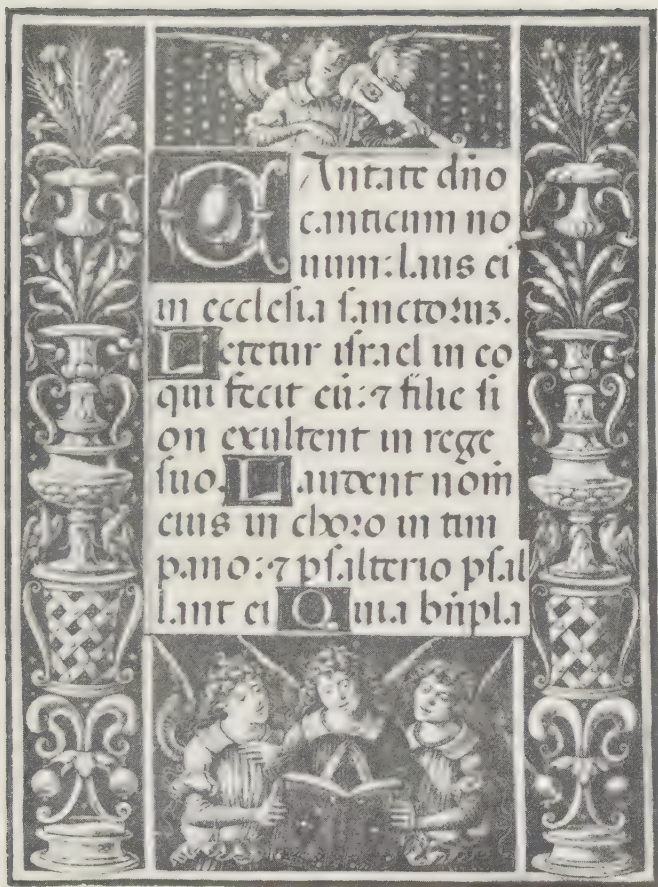 CAntate dño
canticum no
uum: laus ei
in ecclesia sanctoruʒ.
Letetur israel in eo
qui fecit eū: ⁊ filie si
on exultent in rege
suo. Laudent nom̄
eius in choro in tim
pano: ⁊ psalterio psal
lant ei Quia bn̄pla